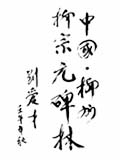 中國·柳州
柳宗元碑林
劉愛才
壬午年秋